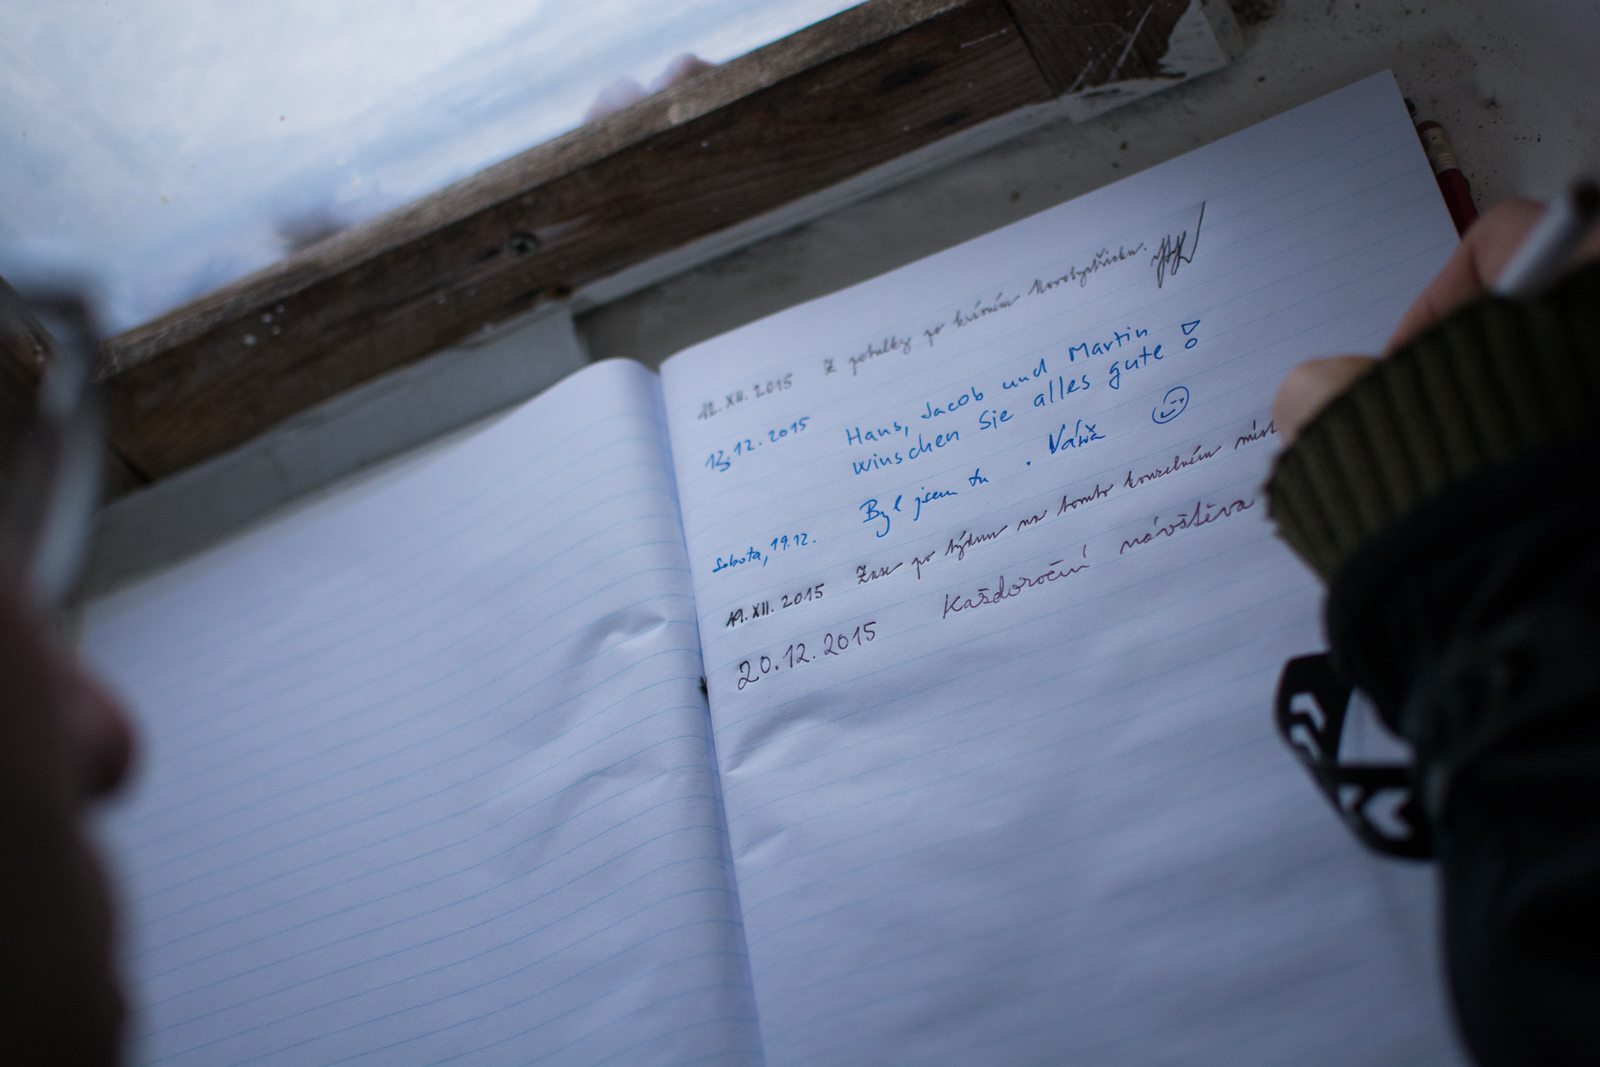 12. XII. 2015 Z potulky po krásném Novobystřicku.
13.12.2015 Hans, Jacob und Martin
winschen Sie alles gute!
Sobota, 19.12. Byl jsem tu. Váňa
19. XII. 2015 Zase po týdnu na tomto kouzelném míst
20.12.2015 Kašdoroční návštěva